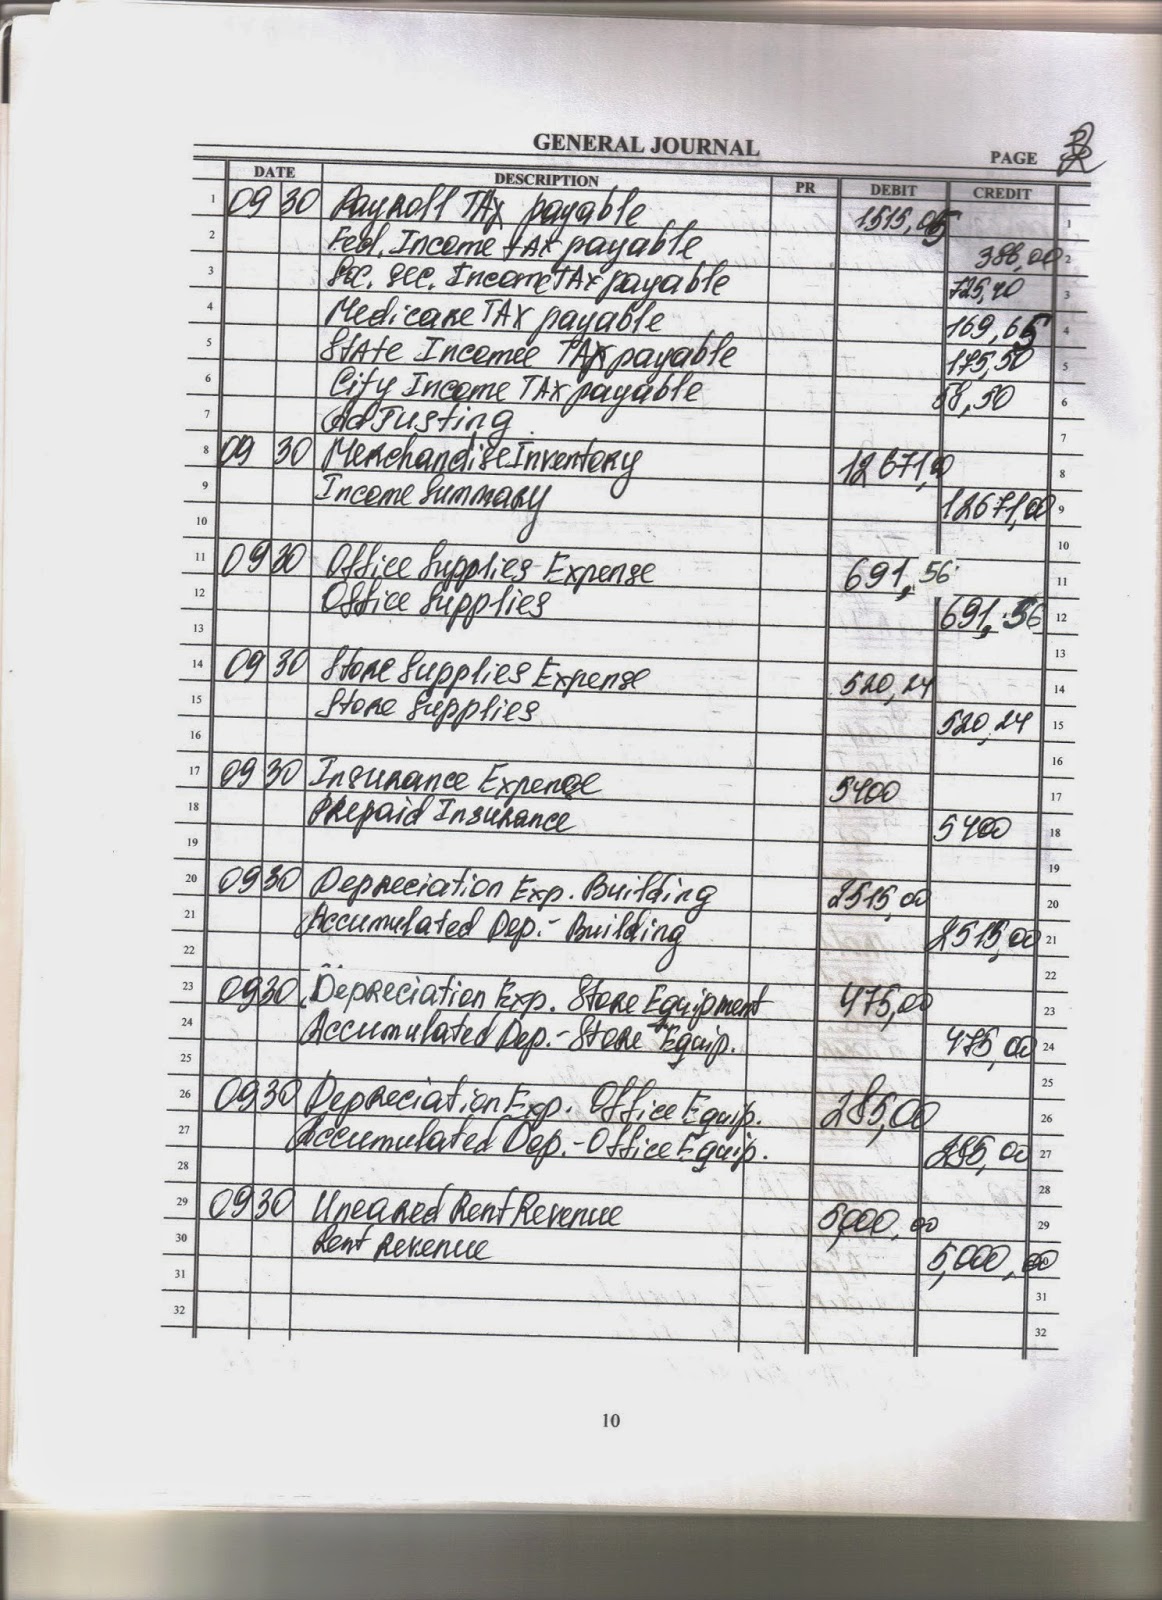 GENERAL JOURNAL
PAGE
DATE DESCRIPTION PR DEBIT CREDIT
1 09 30 Payroll TAx payable 1515,05 1
2 Fed. Income TAX payable 386,00 2
3 Soc. Sec. Income TAx payable 725,40 3
4 Medicare TAX payable 169,65 4
5 State Income TAx payable 175,50 5
6 City Income TAX payable 58,50 6
7 Adjusting 7
8 09 30 Merchandise Inventory 12671,00 8
9 Income Summary 12671,00 9
10 10
11 09 30 Office Supplies Expense 691,56 11
12 Office Supplies 691,56 12
13 13
14 09 30 Store Supplies Expense 520,24 14
15 Store Supplies 520,24 15
16 16
17 09 30 Insurance Expense 5400 17
18 Prepaid Insurance 5400 18
19 19
20 09 30 Depreciation Exp. Building 2515,00 20
21 Accumulated Dep.- Building 2515,00 21
22 22
23 09 30 Depreciation Exp. Store Equipment 475,00 23
24 Accumulated Dep.- Store Equip. 475,00 24
25 25
26 09 30 Depreciation Exp. Office Equip. 285,00 26
27 Accumulated Dep.- Office Equip. 285,00 27
28 28
29 09 30 Uneared Rent Revenue 5,000,00 29
30 Rent Revenue 5,000,00
31 31
32 32
10